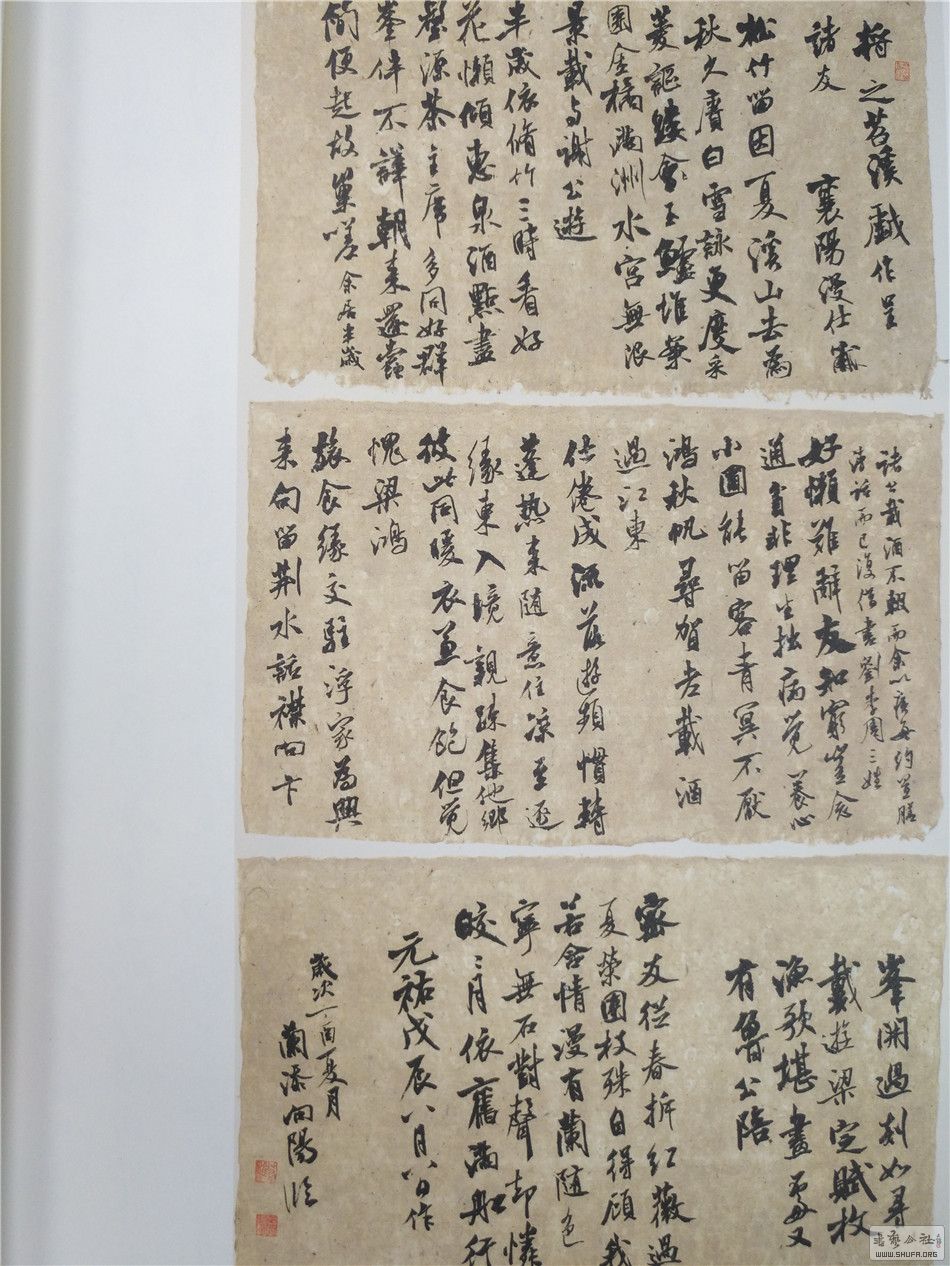 将之苕溪戲作呈
諸友 襄陽漫仕黻
松竹留因夏溪山去為
秋久賡白雪詠更度采
菱謳縷會玉鱸堆案
團金橘滿洲水宮無限
景載與謝公遊
半歲依脩竹三時看好
花懶傾惠泉酒點盡
壑源茶主席多同好群
峯伴不譁朝來還蠹
簡便起故巢嗟余居半歲
諸公載酒不輟而余以疾每約置膳
清話而已復借書劉李周三姓
好懶難辭友知窮豈念
通貧非理生拙病覺養心
小圃能留客青冥不厭
鴻秋帆尋賀老載酒
過江東
仕倦成流落遊頻慣轉
蓬熱來隨意住涼至逐
緣東入境親疎集他鄉
彼此同暖衣兼食飽但覺
愧梁鴻
旅食緣交駐浮家為興
來句留荊水話襟向卞
峯開過剡如尋
戴遊梁定賦枚
漁歌堪畫處又
有魯公陪
密友從春拆紅薇過
夏榮團枝殊自得顧我
若含情漫有蘭隨色
寧無石對聲却憐
皎〻月依舊滿船行
元祐戊辰八月八日作
歲次丁酉夏月
蘭添向陽臨
WWW.SHUFA.ORG